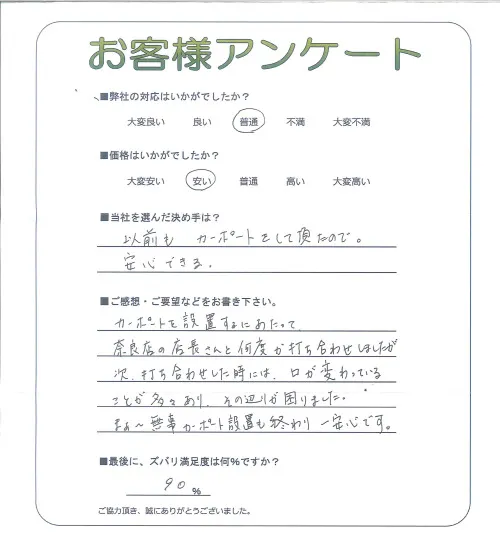 お客様アンケート
■弊社の対応はいかがでしたか？
大変良い 良い 普通 不満 大変不満
■価格はいかがでしたか？
大変安い 安い 普通 高い 大変高い
■当社を選んだ決め手は？
以前も カーポートをして頂たので。
安心できる.
■ご感想・ご要望などをお書き下さい。
カーポートを設置するにあたって
奈良店の店長さんと何度か打ち合わせしましたが
次、打ち合わせした時には、口が変わっている
ことが多々あり、その辺りが困りました.
まぁ～無事カーポート設置も終わり 一安心です。
■最後に、ズバリ満足度は何％ですか？
90 %
ご協力頂き、誠にありがとうございました。